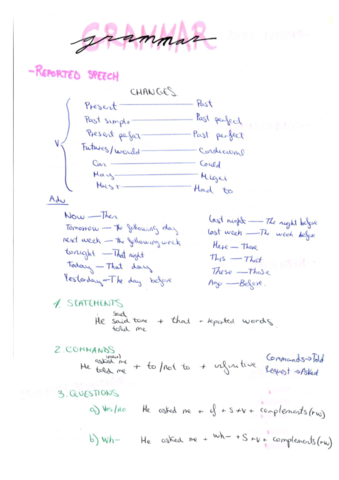 GRAMMAR
grammar
-REPORTED SPEECH
CHANGES
Present — Past
Past simple — Past perfect
Present perfect — Past perfect
V
Futures/would — Conditional
Can — Could
May — Might
Must — Had to
Adv
Now — Then
Tomorrow — The following day
next week — The following week
tonight — That night
Today — That day
Yesterday — The day before
Last night — The night before
last week — The week before
Here — There
This — That
These — Those
Ago — Before.
1. STATEMENTS
said
He said to me + that + reported words.
told me
2. COMMANDS
asked me
He told me + to/not to + infinitive
Commands → Told
Request → Asked
3. QUESTIONS
a) Yes/No He asked me + if + S + V + complements (+w)
b) Wh- He asked me + wh- + S + V + complements (+w)